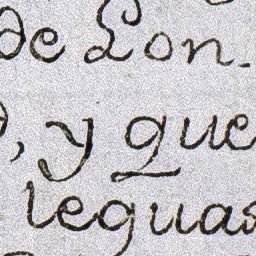 de Lon-
, y que
leguas